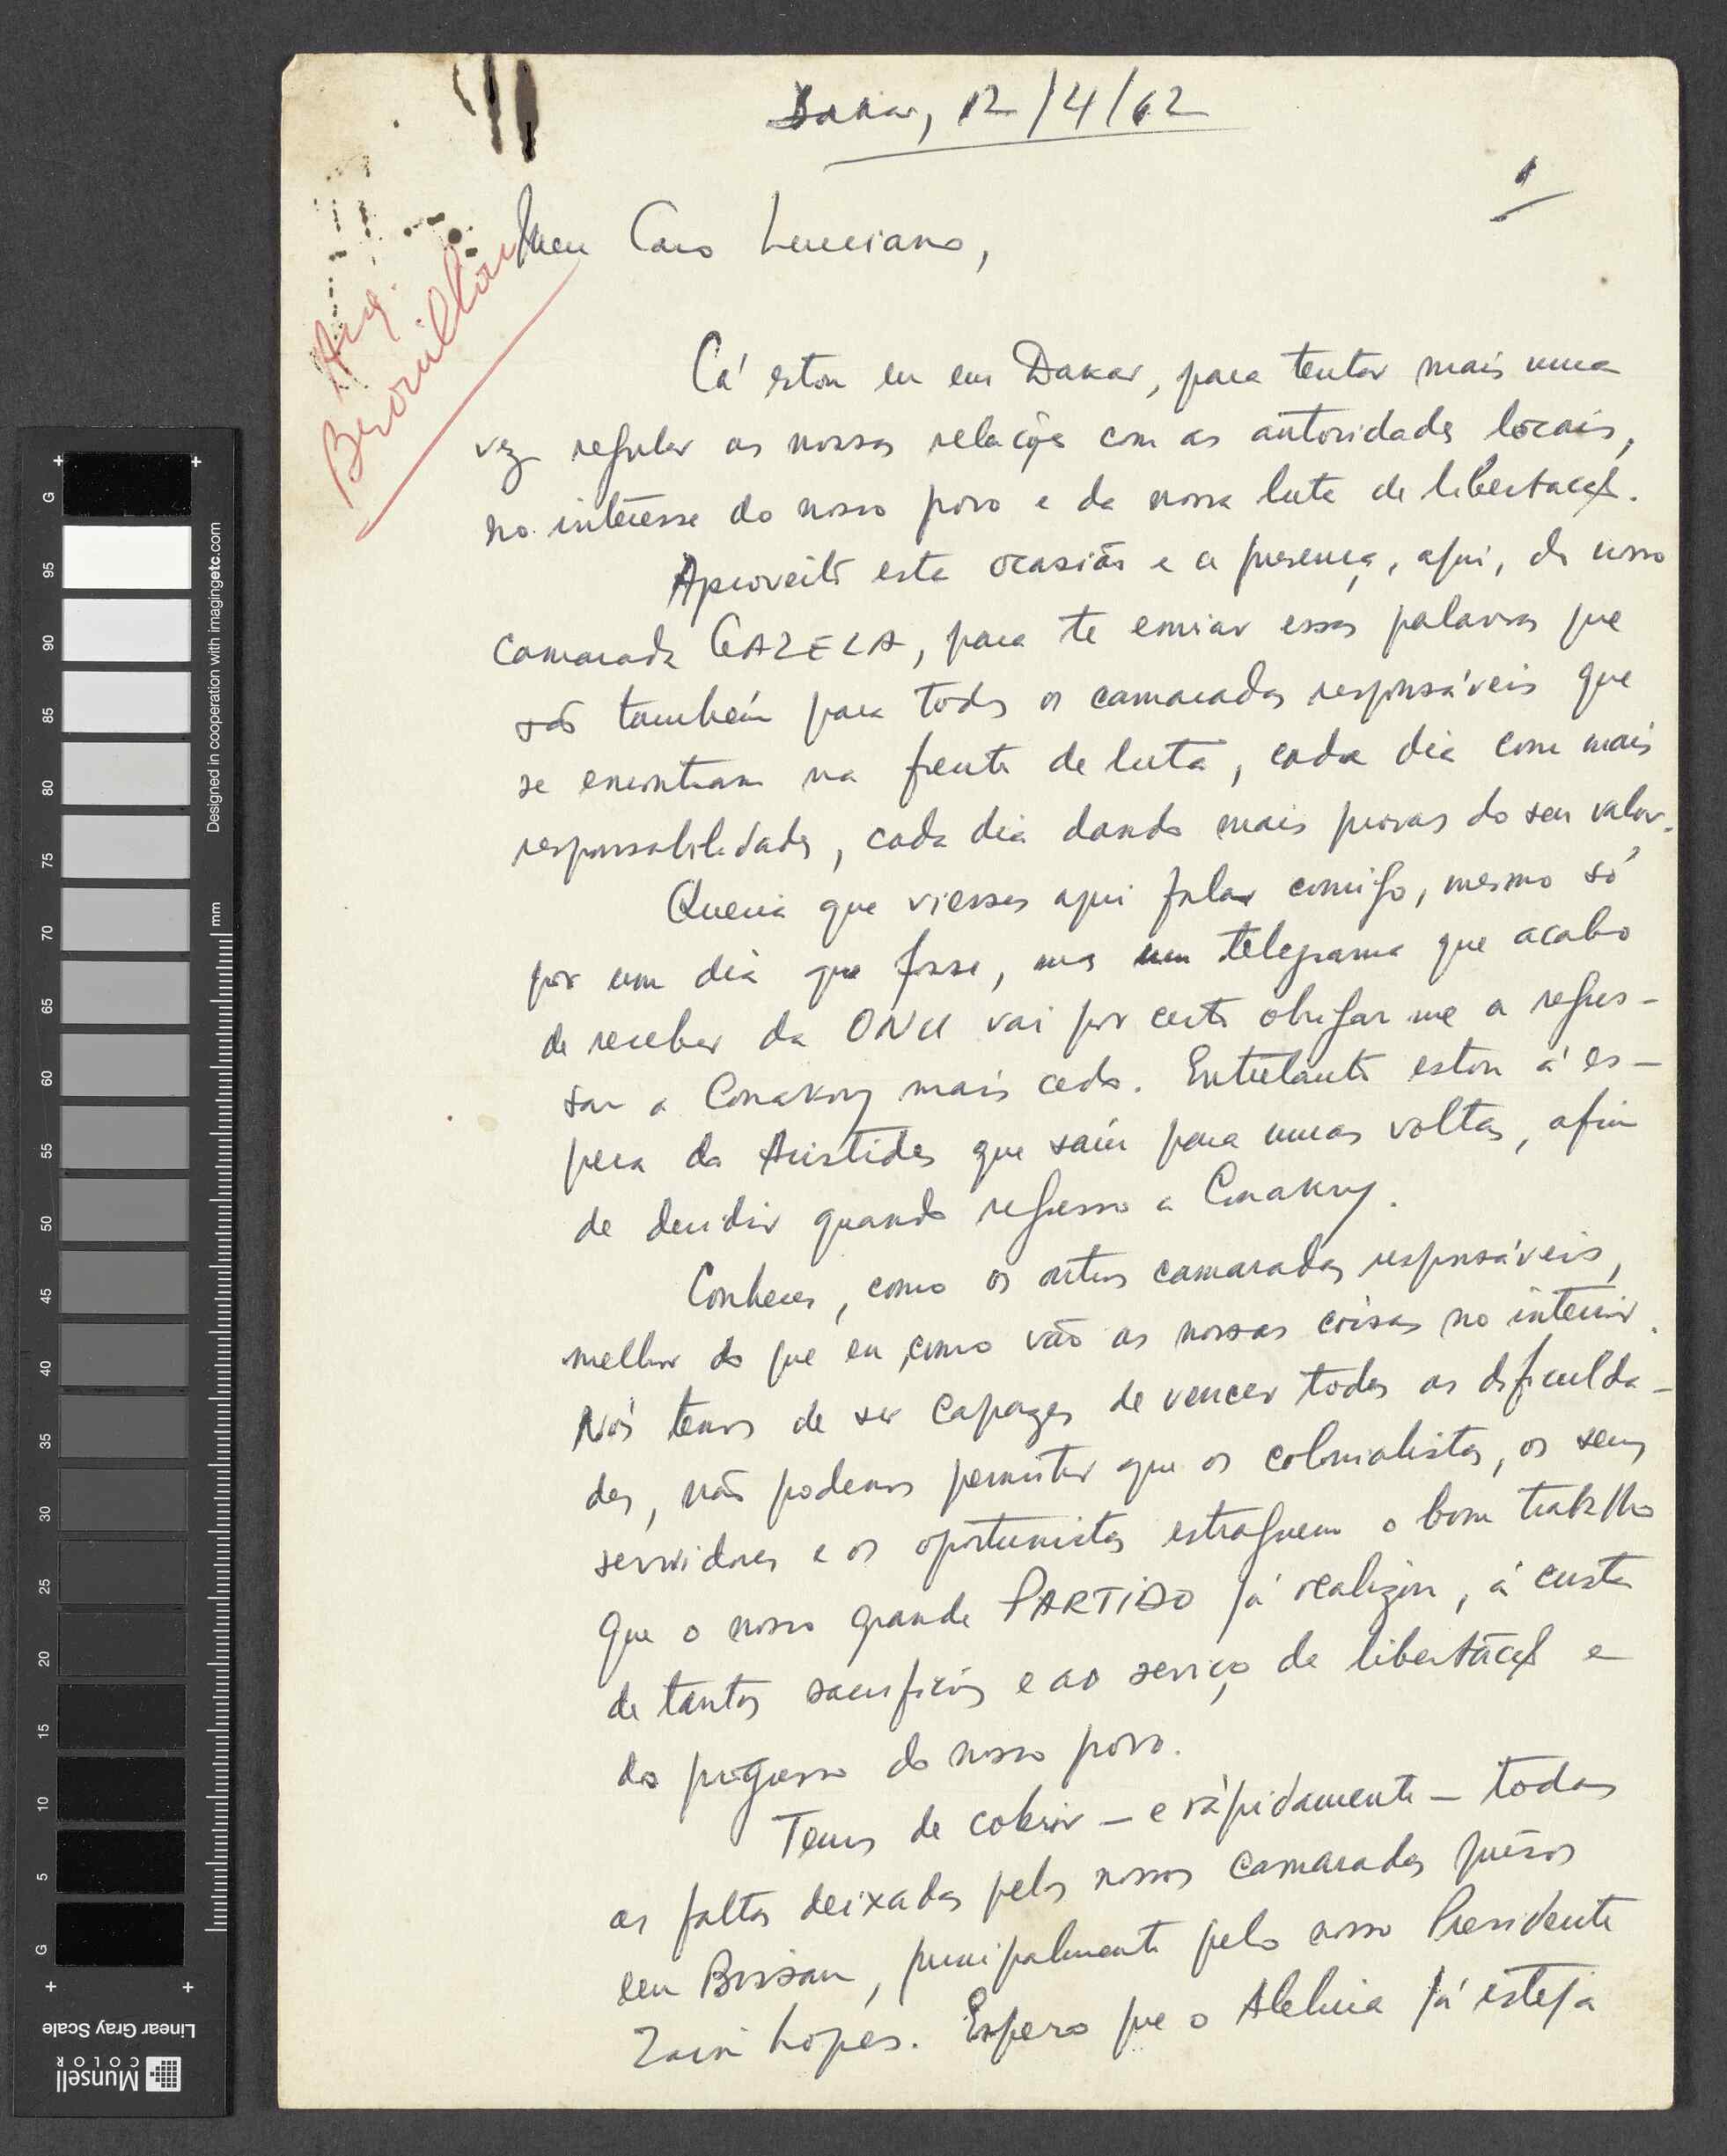 Dakar, 12/4/62
1
Arq.
Brouillon
Meu Caro Lucciano,
Cá estou eu em Dakar, para tentar mais uma
vez regular as nossas relações com as autoridades locais,
no interêsse do nosso povo e da nossa luta de libertação.
Aproveito esta ocasião e a presença, aqui, do nosso
camarada GAZELA, para te enviar essas palavras que
são também para todos os camaradas responsáveis que
se encontram na frente de luta, cada dia com mais
responsabilidades, cada dia dando mais provas do seu valor.
Queria que viesses aqui falar comigo, mesmo só
por um dia que fosse, mas um telegrama que acabo
de receber da ONU vai por certo obrigar-me a regres-
sar a Conakry mais cedo. Entretanto estou à es-
pera do Aristides que saíu para umas voltas, afim
de decidir quando regresso a Conakry.
Conheces, como os outros camaradas responsáveis,
melhor do que eu, como vão as nossas coisas no interior.
Nós temos de ser capazes de vencer todas as dificulda-
des, não podemos permitir que os colonialistas, os seus
servidores e os oportunistas estraguem o bom trabalho
que o nosso grande PARTIDO já realizou, à custa
de tantos sacrifícios e ao serviço da libertação e
do progresso do nosso povo.
Temos de cobrir — e ràpidamente — todas
as faltas deixadas pelos nossos camaradas prêsos
em Bissau, principalmente pelo nosso Presidente
Zain Lopes. Espero que o Aleluia já esteja
G
95
90
85
80
75
70
65
60
55
50
45
40
35
30
25
20
15
10
5
G
mm
Designed in cooperation with imagingetc.com
Linear Gray Scale
Munsell
COLOR